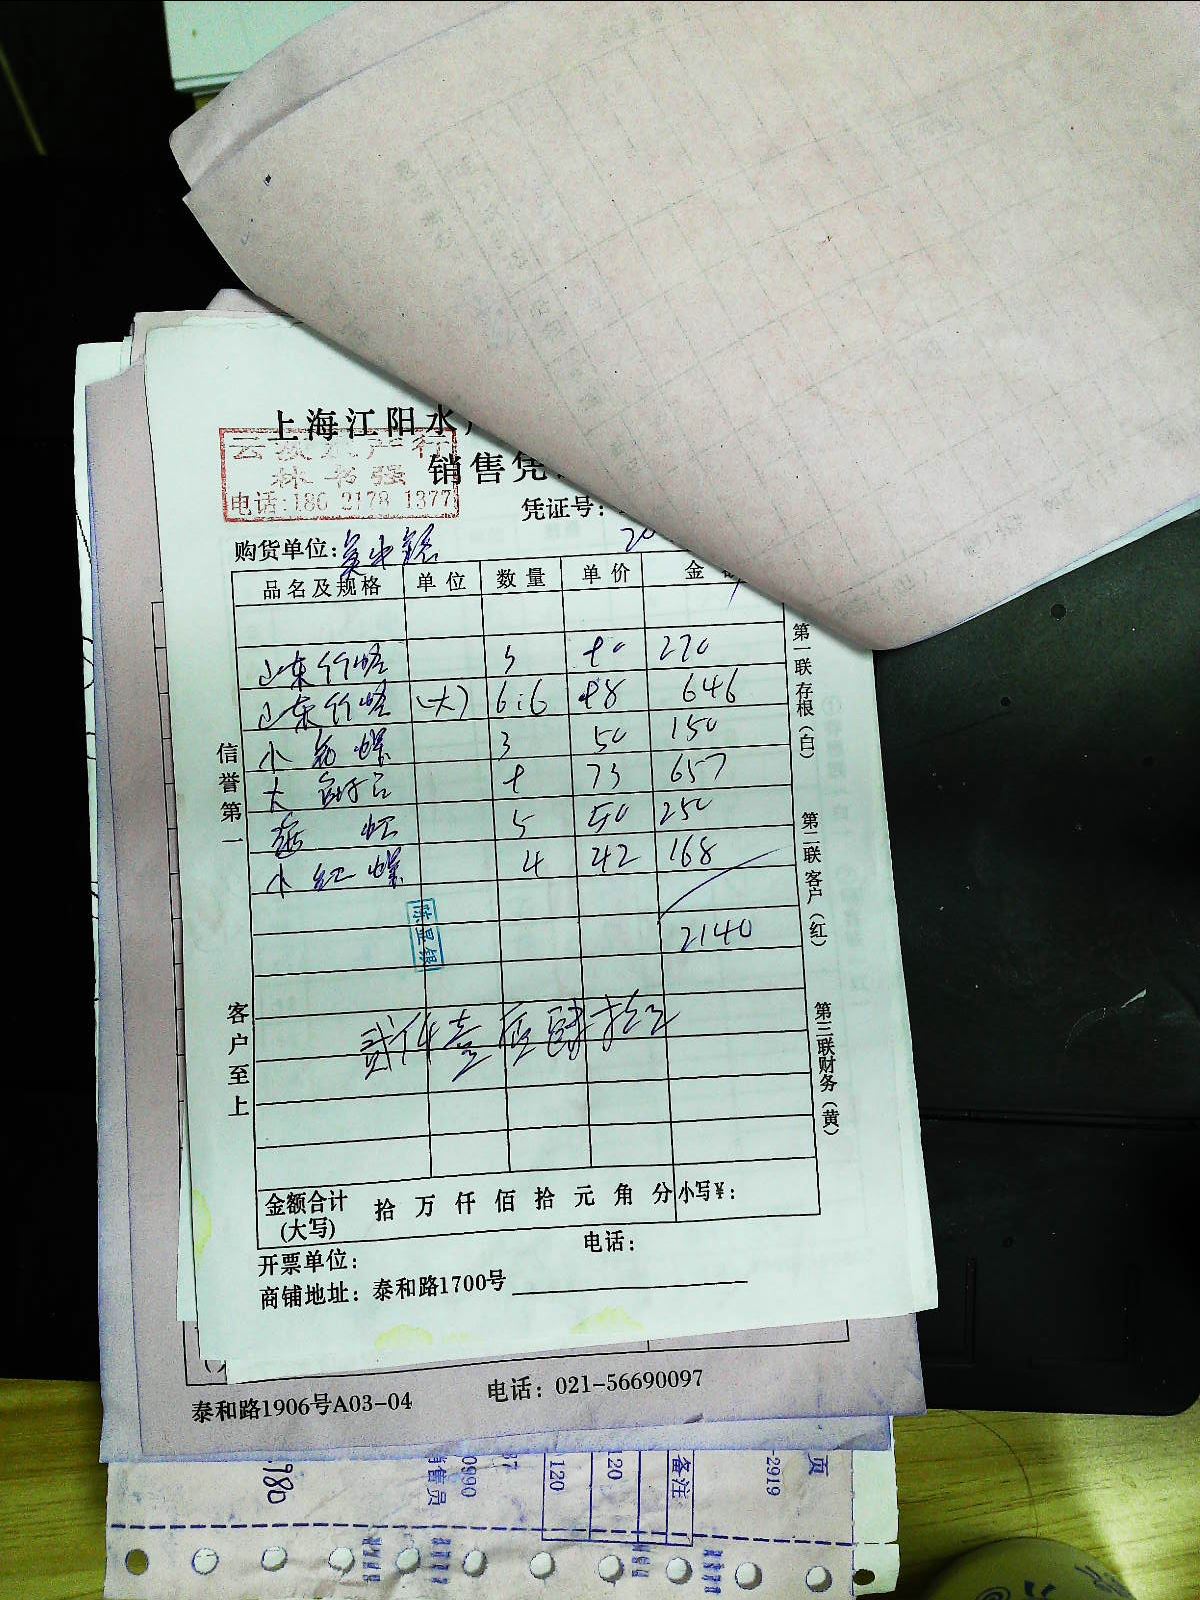 上海江阳水
销售凭
林书强
电话:186 2178 1377
凭证号:
购货单位: 吴中路
20
品名及规格 单位 数量 单价 金
山东竹蛏 5 270
山东竹蛏 (大) 6.6 98 646
小 螺 3 50 150
大 73 657
虾 5 50 250
小红螺 4 42 168
2140
贰仟壹佰肆拾元
陈显银
信誉第一
客户至上
第一联 存根(白)
第二联 客户(红)
第三联 财务(黄)
金额合计(大写) 拾 万 仟 佰 拾 元 角 分 小写¥:
开票单位: 电话:
商铺地址: 泰和路1700号
泰和路1906号A03-04 电话: 021-56690097
页
-2919
备注
120
120
37
0990
售员
780